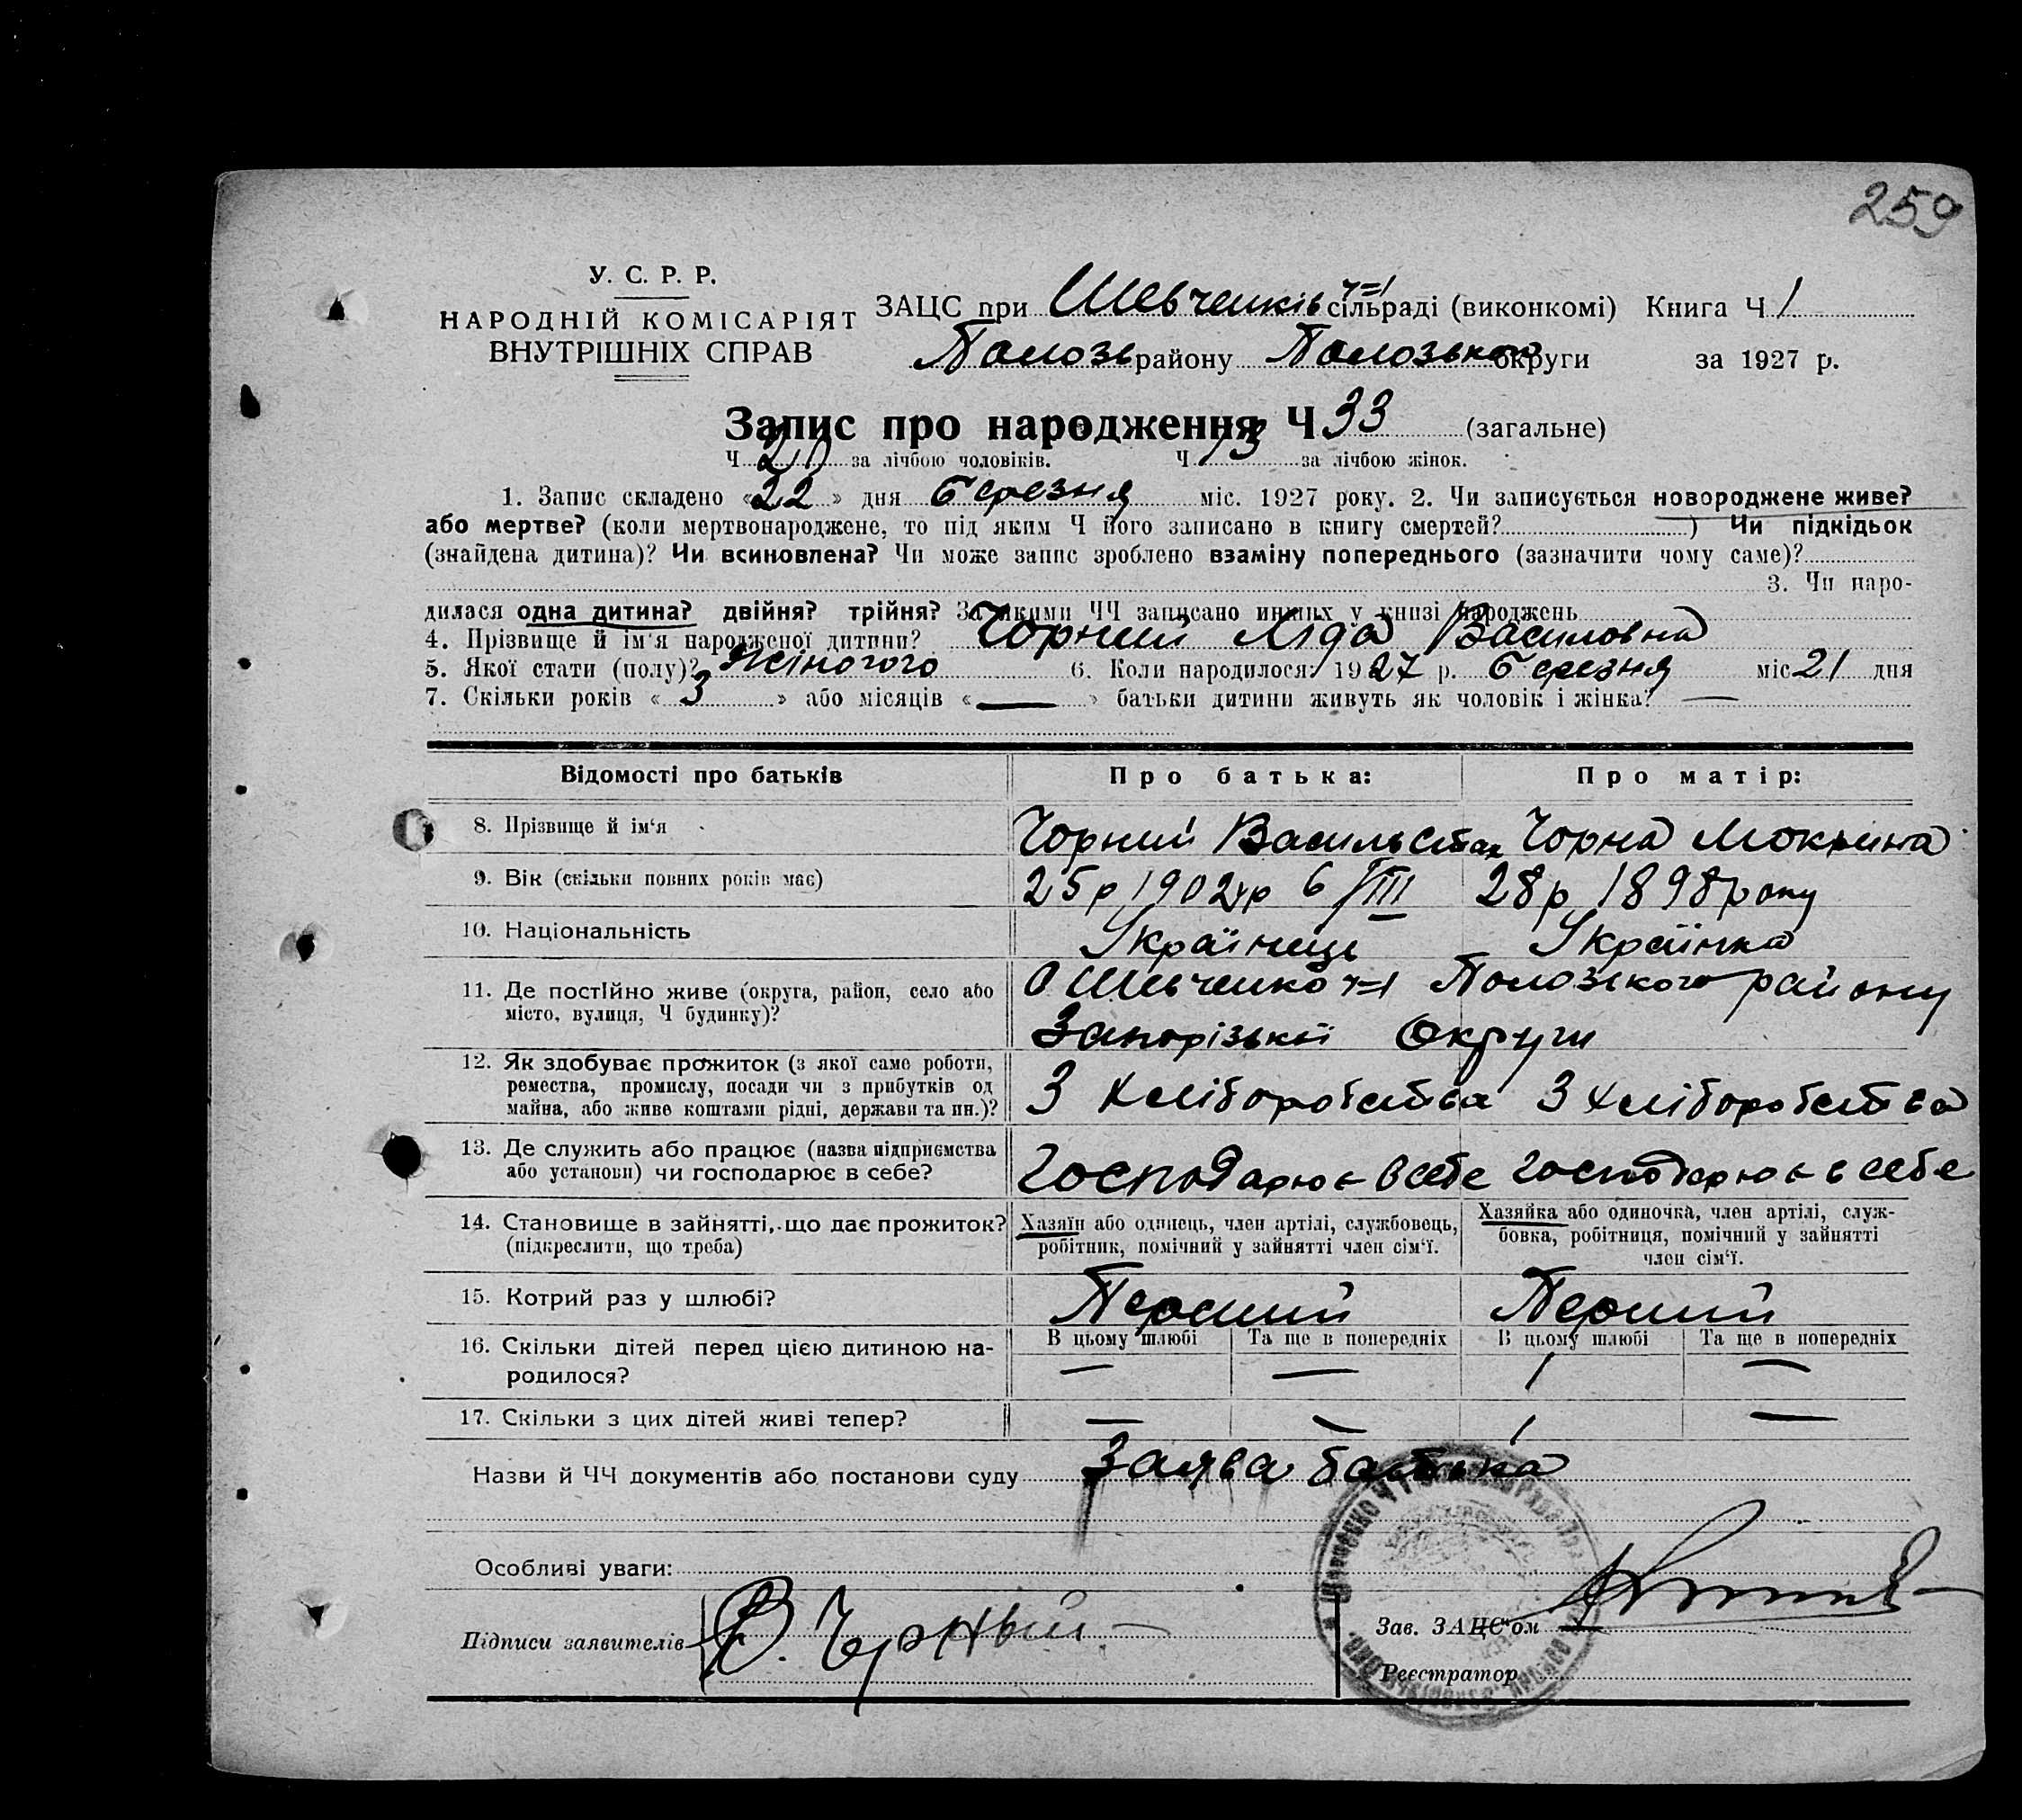 259
У. С. Р. Р.
НАРОДНІЙ КОМІСАРІЯТ
ВНУТРІШНІХ СПРАВ
ЗАЦС при Шевченків ч=1 сільраді (виконкомі) Книга Ч 1
Полозь району Полозького округи за 1927 р.
Запис про народження Ч 33 (загальне)
Ч 20 за лічбою чоловіків. Ч 13 за лічбою жінок.
1. Запис складено «22» дня березня міс. 1927 року. 2. Чи записується новороджене живе?
або мертве? (коли мертвонароджене, то під яким Ч його записано в книгу смертей? ) Чи підкідьок
(знайдена дитина)? Чи всиновлена? Чи може запис зроблено взаміну попереднього (зазначити чому саме)?
3. Чи наро-
дилася одна дитина? двійня? трійня? За якими ЧЧ записано инших у книзі народжень
4. Прізвище й ім'я народженої дитини? Чорний Ліда Василовна
5. Якої стати (полу)? Жіночого 6. Коли народилося: 1927 р. березня міс 21 дня
7. Скільки років « 3 » або місяців « — » батьки дитини живуть як чоловік і жінка? —
Відомості про батьків Про батька: Про матір:
8. Прізвище й ім'я Чорний Василь Чорна Мокрина
9. Вік (скільки повних років має) 25р 1902 р 6/III 28р 1898 року
10. Національність Українець Українка
11. Де постійно живе (округа, район, село або місто, вулиця, Ч будинку)? Шевченко ч=1 Полозського району
Запорізької Округи
12. Як здобуває прожиток (з якої саме роботи,
ремества, промислу, посади чи з прибутків од
майна, або живе коштами рідні, держави та ин.)? З хліборобства З хліборобства
13. Де служить або працює (назва підприємства
або установи) чи господарює в себе? Господарює в себе господарює в себе
14. Становище в зайнятті, що дає прожиток?
(підкреслити, що треба)
Хазяїн або одинець, член артілі, службовець,
робітник, помічний у зайнятті член сім'ї.
Хазяйка або одиночка, член артілі, служ-
бовка, робітниця, помічний у зайнятті
член сім'ї.
15. Котрий раз у шлюбі? Перший Перший
16. Скільки дітей перед цією дитиною на-
родилося?
В цьому шлюбі Та ще в попередніх В цьому шлюбі Та ще в попередніх
— — 1 —
17. Скільки з цих дітей живі тепер? — — 1 —
Назви й ЧЧ документів або постанови суду Заява батька
Особливі уваги:
Підписи заявителів В. Чорный
Зав. ЗАЦС'ом
Реєстратор